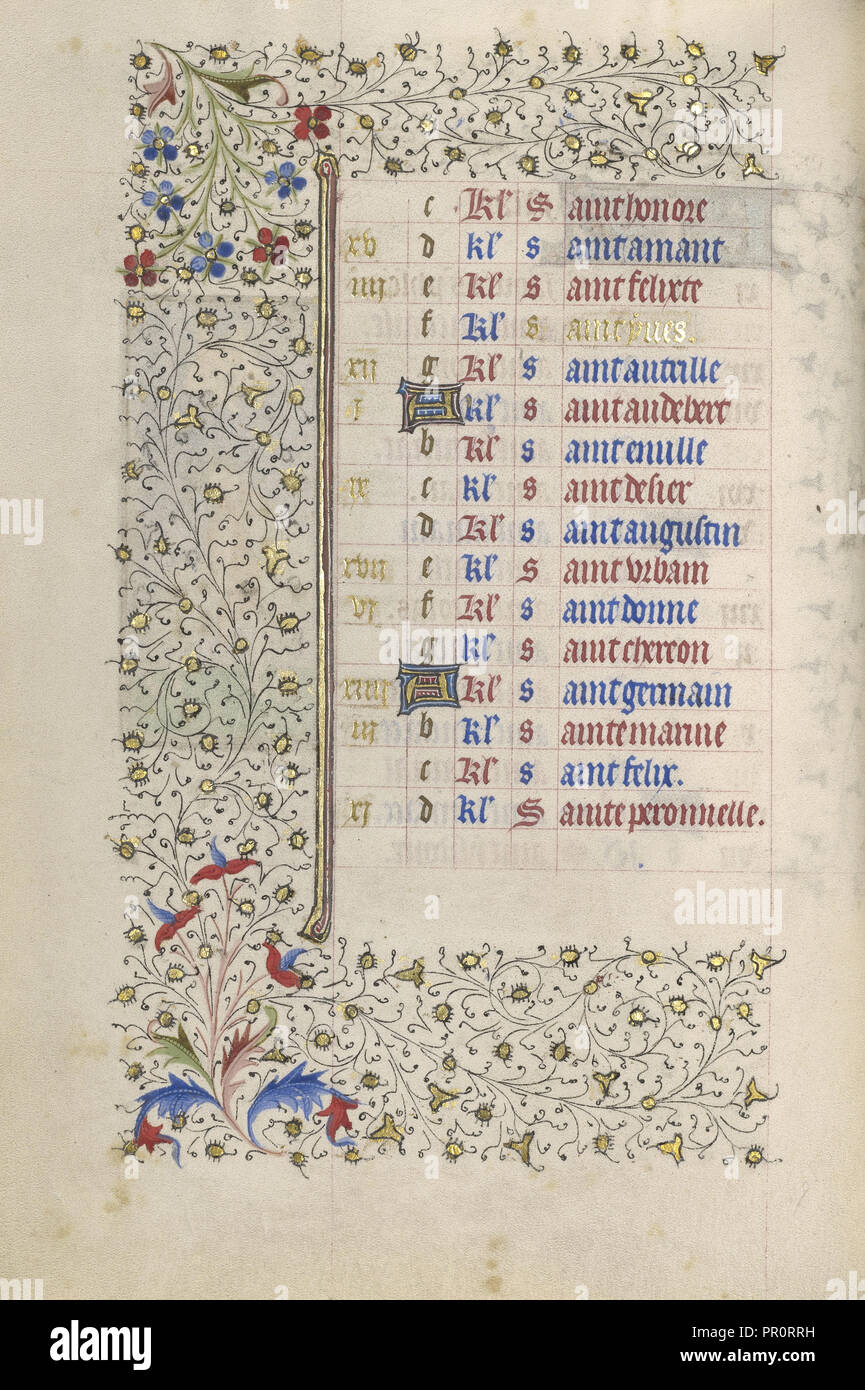 c kl' S aint honore
xv d kl' s aint amant
iiij e kl' s aint felixte
f kl' s aint yves.
xij g kl' s aint autrille
j A kl' s aint audebert
b kl' s aint enuille
ix c kl' s aint desier
d kl' s aint augustin
xvij e kl' S aint vrbain
vj f kl' s aint donne
g kl' s aint cherron
xiiij A kl' s aint germain
iij b kl' s ainte marine
c kl' s aint felix.
xj d kl' S ainte peronnelle.
alamy
alamy stock photo
Image ID: PR0RRH
www.alamy.com